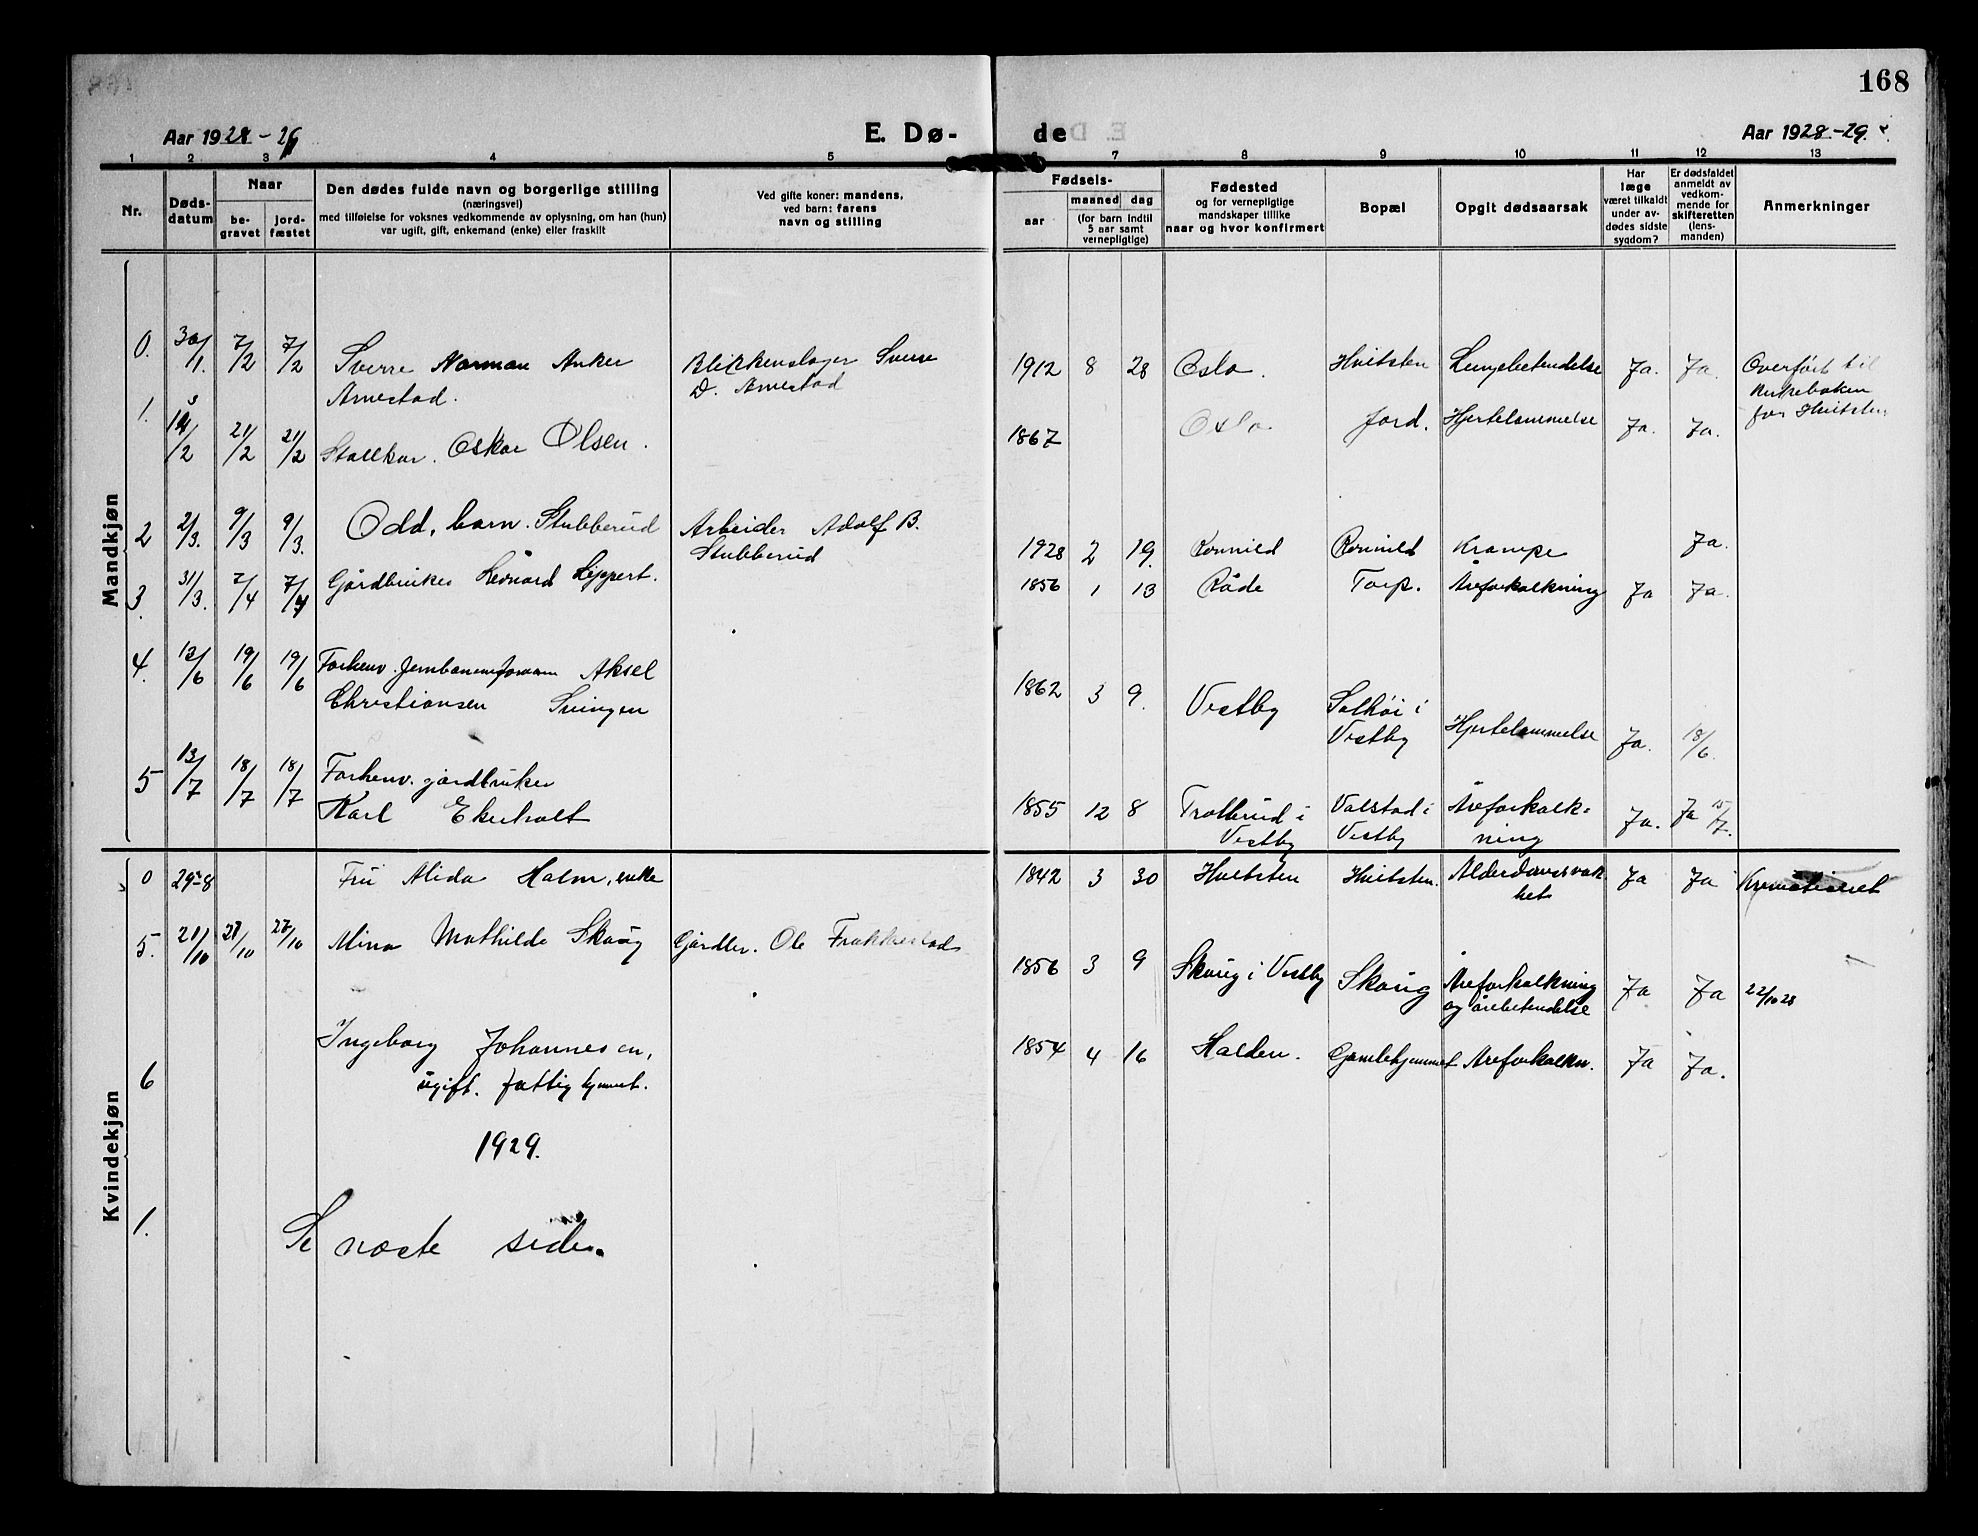 168
Aar 1928-29
E. Dø-
de
Aar 1928-29.
1 2 3 4 5 7 8 9 10 11 12 13
Nr.
Døds-
datum
Naar
be-
gravet
jord-
fæstet
Den dødes fulde navn og borgerlige stilling
(næringsvei)
med tilføielse for voksnes vedkommende av oplysning, om han (hun)
var ugift, gift, enkemand (enke) eller fraskilt
Ved gifte koner: mandens,
ved barn: farens
navn og stilling
Fødsels-
aar
maaned dag
(for barn indtil
5 aar samt
vernepligtige)
Fødested
og for vernepligtige
mandskaper tillike
naar og hvor konfirmert
Bopæl
Opgit dødsaarsak
Har
læge
været tilkaldt
under av-
dødes sidste
sygdom?
Er dødsfaldet
anmeldt av
vedkom-
mende for
skifteretten
(lens-
manden)
Anmerkninger
Mandkjøn
0. 30/1. 7/2 7/2 Sverre Norman Anker Blikkenslager Sverre 1912 8 28 Oslo. Hvitsten Lungebetendelse Ja. Ja. Overført til
Arnestad. D. Arnestad kirkeboken
for Hvitsten
1. /2 21/2 21/2 Stallkar. Oskar Olsen. 1867 Oslo. Jord. Hjertelammelse Ja. Ja.
2 2/3. 9/3 9/3. Odd, barn. Stubberud Arbeider Adolf B. 1928 2 19. Romnild Romnild Krampe Ja.
Stubberud
3. 31/3. 7/4 7/4 Gårdbruker Leonard Lippert. 1856 1 13 Råde Torp. Åreforkalkning Ja Ja.
4. 13/6 19/6 19/6 Forhenv. Aksel 1862 3 9. Vestby Solhøi i
Christiansen Svingen Vestby Hjertelammelse Ja. 18/6.
5 13/7 18/7 18/7 Forhenv. gårdbruker
Karl Ekerholt 1855 12 8 Trollerud i Valstad i Åreforkalk-
Vestby Vestby ning Ja. Ja 15/7.
Kvindekjøn
0 29-8 Fru Alida Holm, enke 1842 3 30 Hvitsten Hvitsten. Alderdomssvak-
het Ja Ja Kremationet
5. 21/10 27/10 27/10 Mina Mathilde Skoug Gårdbr. Ole Frakkestad 1856 3 9 Skoug i Vestby Skoug Åreforkalkning
og årebetendelse Ja Ja 22/10 28
6 Ingeborg Johannesen, 1854 4 16 Halden. Gamlehjemmet Åreforkalkn. Ja Ja.
ugift. fattighjemmet.
1929.
1. Se næste side.